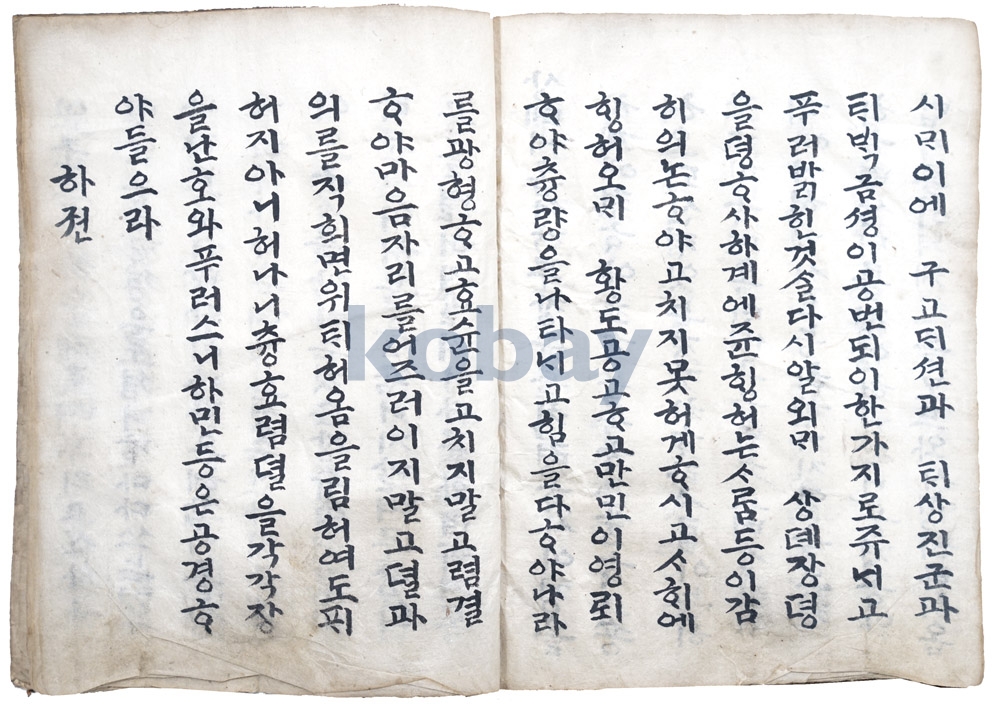 시ᄆᆡ이에 구고뎌션과 ᄐᆡ상진군과
ᄐᆡᄇᆡᆨ금셩이공변되이한가지로쥬서고
푸러발킨것슬다시알외ᄆᆡ 샹뎨쟝뎡
을뎡ᄒᆞ사하계에쥰ᄒᆡᆼ허는ᄉᆞᄅᆞᆷ등이감
히의논ᄒᆞ야고치지못허게ᄒᆞ시고ᄉᆞ회에
ᄒᆡᆼ허오ᄆᆡ 황도공고ᄒᆞ고만민이영뢰
ᄒᆞ야츙량을나타ᄂᆡ고힘을다ᄒᆞ야나라
를광형ᄒᆞ고효슌을고치지말고렴결
ᄒᆞ야마음자리를어즈러이지말고뎔과
의를직희면위ᄐᆡ허옴을림허여도픠
허지아니허나니츙효렴뎔을각각장
을난호와푸러스니하민등은공경ᄒᆞ
야들으라
하젼
kobay